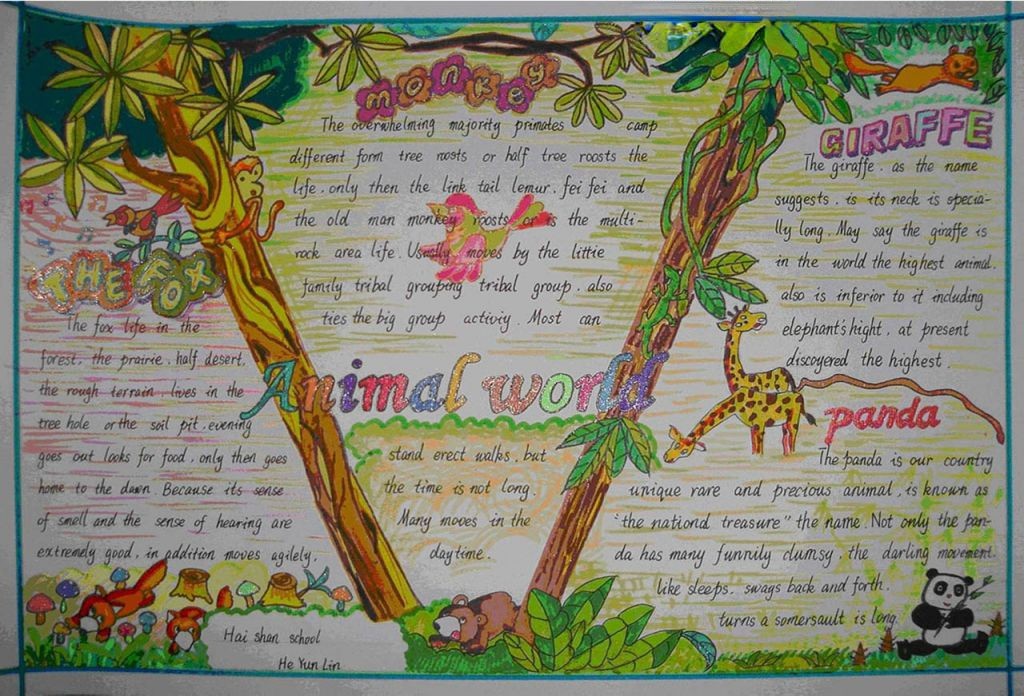 monkey
The overwhelming majority primates camp
different form tree roosts or half tree roosts the
life. only then the link tail lemur. fei fei and
the old man monkey roosts or is the multi-
rock area life. Usually moves by the little
family tribal grouping tribal group. also
ties the big group activiy. Most can
Animal world
stand erect walks. but
the time is not long.
Many moves in the
daytime.
THE FOX
The fox life in the
forest. the prairie. half desert.
the rough terrain. lives in the
tree hole or the soil pit. evening
goes out looks for food. only then goes
home to the dawn. Because its sense
of smell and the sense of hearing are
extremely good. in addition moves agilely.
Hai shan school
He Yun Lin
GIRAFFE
The giraffe. as the name
suggests. is its neck is specia-
lly long. May say the giraffe is
in the world the highest animal.
also is inferior to it including
elephant's hight. at present
discoyered the highest.
panda
The panda is our country
unique rare and precious animal. is known as
"the nationd treasure" the name. Not only the pan-
da has many funnily clumsy. the darling movement.
like sleeps. sways back and forth.
turns a somersault is long.